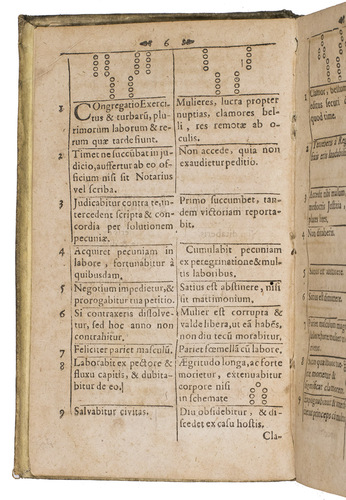 6
1
COngregatio Exerci-
tus & turbarũ, plu-
rimorum laborum & re-
rum quæ tarde fiunt.
Mulieres, lucra propter
nuptias, clamores bel-
li, res remotæ ab o-
culis.
2
Timet ne succũbat in ju-
dicio, auffertur ab eo of-
ficium nisi sit Notarius
vel scriba.
Non accede, quia non
exaudietur peditio.
3
Judicabitur contra te, in-
tercedent scripta & con-
cordia per solutionem
pecuniæ.
Primo succumbet, tan-
dem victoriam reporta-
bit.
4
Acquiret pecuniam in
labore, fortunabitur à
quibusdam.
Cumulabit pecuniam
ex peregrinatione & mul-
tis laboribus.
5
Negotium impedietur, &
prorogabitur tua petitio.
Satius est abstinere, nisi
sit matrimonium.
6
Si contraxeris dissolve-
tur, sed hoc anno non
contrahitur.
Mulier est corrupta &
valde libera, ut eã habēs,
non diu tecũ morabitur.
7
Feliciter pariet masculũ.
Pariet fœmellã cũ labore.
8
Laborabit ex pectore &
fluxu capitis, & dubita-
bitur de eo.
Ægritudo longa, ac forte
morietur, extenuabitur
corpore nisi
in schemate
9
Salvabitur civitas.
Diu obsidebitur, & di-
scedet ex casu hostis.
Cla-
1
2
3
4
5
6
7
8